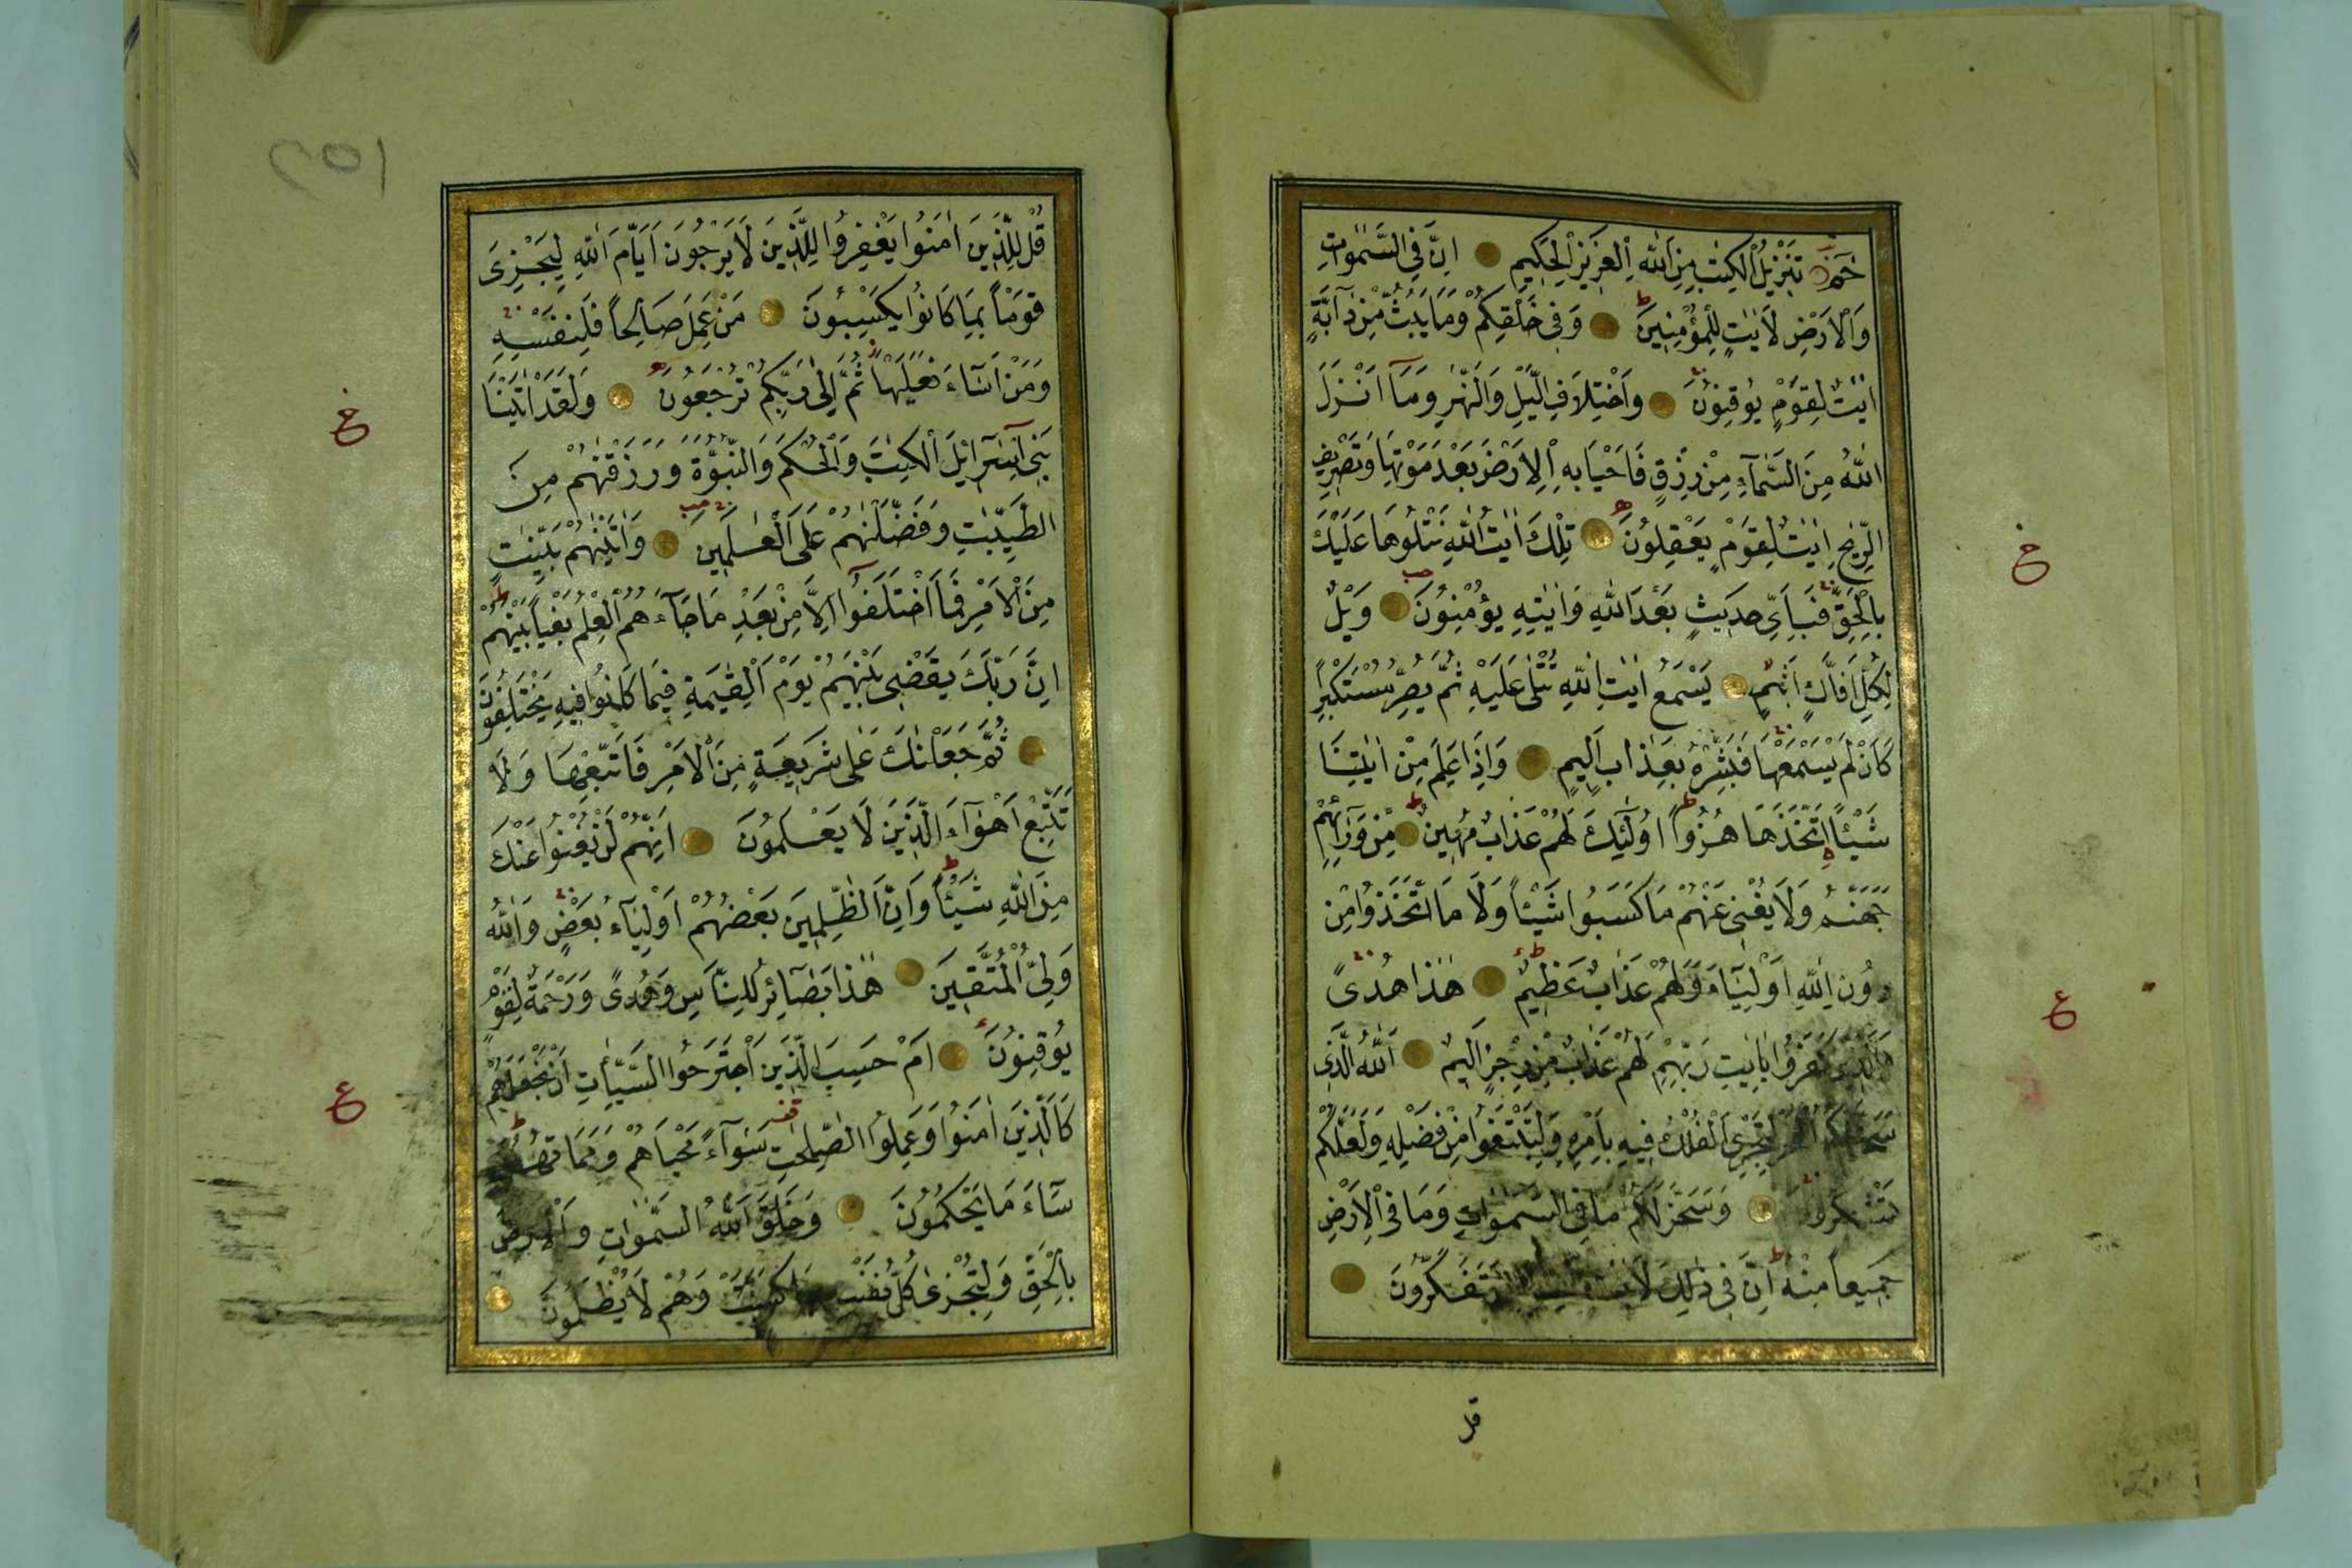 حٰمۤ تَنْزِيلُ الْكِتٰبِ مِنَ اللّٰهِ الْعَزِيزِ الْحَكِيمِ اِنَّ فِي السَّمٰوَاتِ
وَالْاَرْضِ لَاٰيَاتٍ لِلْمُؤْمِنِينَ وَفِي خَلْقِكُمْ وَمَا يَبُثُّ مِنْ دَآبَّةٍ
اٰيَاتٌ لِقَوْمٍ يُوقِنُونَ وَاخْتِلَافِ الَّيْلِ وَالنَّهٰرِ وَمَٓا اَنْزَلَ
اللّٰهُ مِنَ السَّمَٓاءِ مِنْ رِزْقٍ فَاَحْيَا بِهِ الْاَرْضَ بَعْدَ مَوْتِهَا وَتَصْرِيفِ
الرِّيٰحِ اٰيٰتٌ لِقَوْمٍ يَعْقِلُونَ تِلْكَ اٰيٰتُ اللّٰهِ نَتْلُوهَا عَلَيْكَ
بِالْحَقِّ فَبِاَيِّ حَدِيثٍ بَعْدَ اللّٰهِ وَاٰيٰتِهِ يُؤْمِنُونَ وَيْلٌ
لِكُلِّ اَفَّاكٍ اَثِيمٍ يَسْمَعُ اٰيٰتِ اللّٰهِ تُتْلٰى عَلَيْهِ ثُمَّ يُصِرُّ مُسْتَكْبِرًا
كَاَنْ لَمْ يَسْمَعْهَا فَبَشِّرْهُ بِعَذَابٍ اَلِيمٍ وَاِذَا عَلِمَ مِنْ اٰيٰتِنَا
شَيْئًا اتَّخَذَهَا هُزُوًا اُولٰٓئِكَ لَهُمْ عَذَابٌ مُهِينٌ مِنْ وَرَٓائِهِمْ
جَهَنَّمُ وَلَا يُغْنِي عَنْهُمْ مَا كَسَبُوا شَيْئًا وَلَا مَا اتَّخَذُوا مِنْ
دُونِ اللّٰهِ اَوْلِيَٓاءَ وَلَهُمْ عَذَابٌ عَظِيمٌ هٰذَا هُدًى
وَالَّذِينَ كَفَرُوا بِاٰيٰتِ رَبِّهِمْ لَهُمْ عَذَابٌ مِنْ رِجْزٍ اَلِيمٌ اَللّٰهُ الَّذِي
سَخَّرَ لَكُمُ الْبَحْرَ لِتَجْرِيَ الْفُلْكُ فِيهِ بِاَمْرِهِ وَلِتَبْتَغُوا مِنْ فَضْلِهِ وَلَعَلَّكُمْ
تَشْكُرُونَ وَسَخَّرَ لَكُمْ مَا فِي السَّمٰوَاتِ وَمَا فِي الْاَرْضِ
جَمِيعًا مِنْهُ اِنَّ فِي ذٰلِكَ يَتَفَكَّرُونَ
قل
خ
ع
قُلْ لِلَّذِينَ اٰمَنُوا يَغْفِرُوا لِلَّذِينَ لَا يَرْجُونَ اَيَّامَ اللّٰهِ لِيَجْزِيَ
قَوْمًا بِمَا كَانُوا يَكْسِبُونَ مَنْ عَمِلَ صَالِحًا فَلِنَفْسِهِ
وَمَنْ اَسَٓاءَ فَعَلَيْهَا ثُمَّ اِلٰى رَبِّكُمْ تُرْجَعُونَ وَلَقَدْ اٰتَيْنَا
بَنِٓي اِسْرَٓائِلَ الْكِتٰبَ وَالْحُكْمَ وَالنُّبُوَّةَ وَرَزَقْنٰهُمْ مِنَ
الطَّيِّبٰتِ وَفَضَّلْنٰهُمْ عَلَى الْعٰلَمِينَ وَاٰتَيْنٰهُمْ بَيِّنٰتٍ
مِنَ الْاَمْرِ فَمَا اخْتَلَفُٓوا اِلَّا مِنْ بَعْدِ مَا جَٓاءَهُمُ الْعِلْمُ بَغْيًا بَيْنَهُمْ
اِنَّ رَبَّكَ يَقْضِي بَيْنَهُمْ يَوْمَ الْقِيٰمَةِ فِيمَا كَانُوا فِيهِ يَخْتَلِفُونَ
ثُمَّ جَعَلْنَاكَ عَلٰى شَرِيعَةٍ مِنَ الْاَمْرِ فَاتَّبِعْهَا وَلَا
تَتَّبِعْ اَهْوَٓاءَ الَّذِينَ لَا يَعْلَمُونَ اِنَّهُمْ لَنْ يُغْنُوا عَنْكَ
مِنَ اللّٰهِ شَيْئًا وَاِنَّ الظّٰلِمِينَ بَعْضُهُمْ اَوْلِيَٓاءُ بَعْضٍ وَاللّٰهُ
وَلِيُّ الْمُتَّقِينَ هٰذَا بَصَٓائِرُ لِلنَّاسِ وَهُدًى وَرَحْمَةٌ لِقَوْمٍ
يُوقِنُونَ اَمْ حَسِبَ الَّذِينَ اجْتَرَحُوا السَّيِّاٰتِ اَنْ نَجْعَلَهُمْ
كَالَّذِينَ اٰمَنُوا وَعَمِلُوا الصّٰلِحٰتِ سَوَٓاءً مَحْيَاهُمْ وَمَمَاتُهُمْ
سَٓاءَ مَا يَحْكُمُونَ وَخَلَقَ اللّٰهُ السَّمٰوَاتِ وَالْاَرْضَ
بِالْحَقِّ وَلِتُجْزٰى كُلُّ نَفْسٍ بِمَا كَسَبَتْ وَهُمْ لَا يُظْلَمُونَ
خ
ع